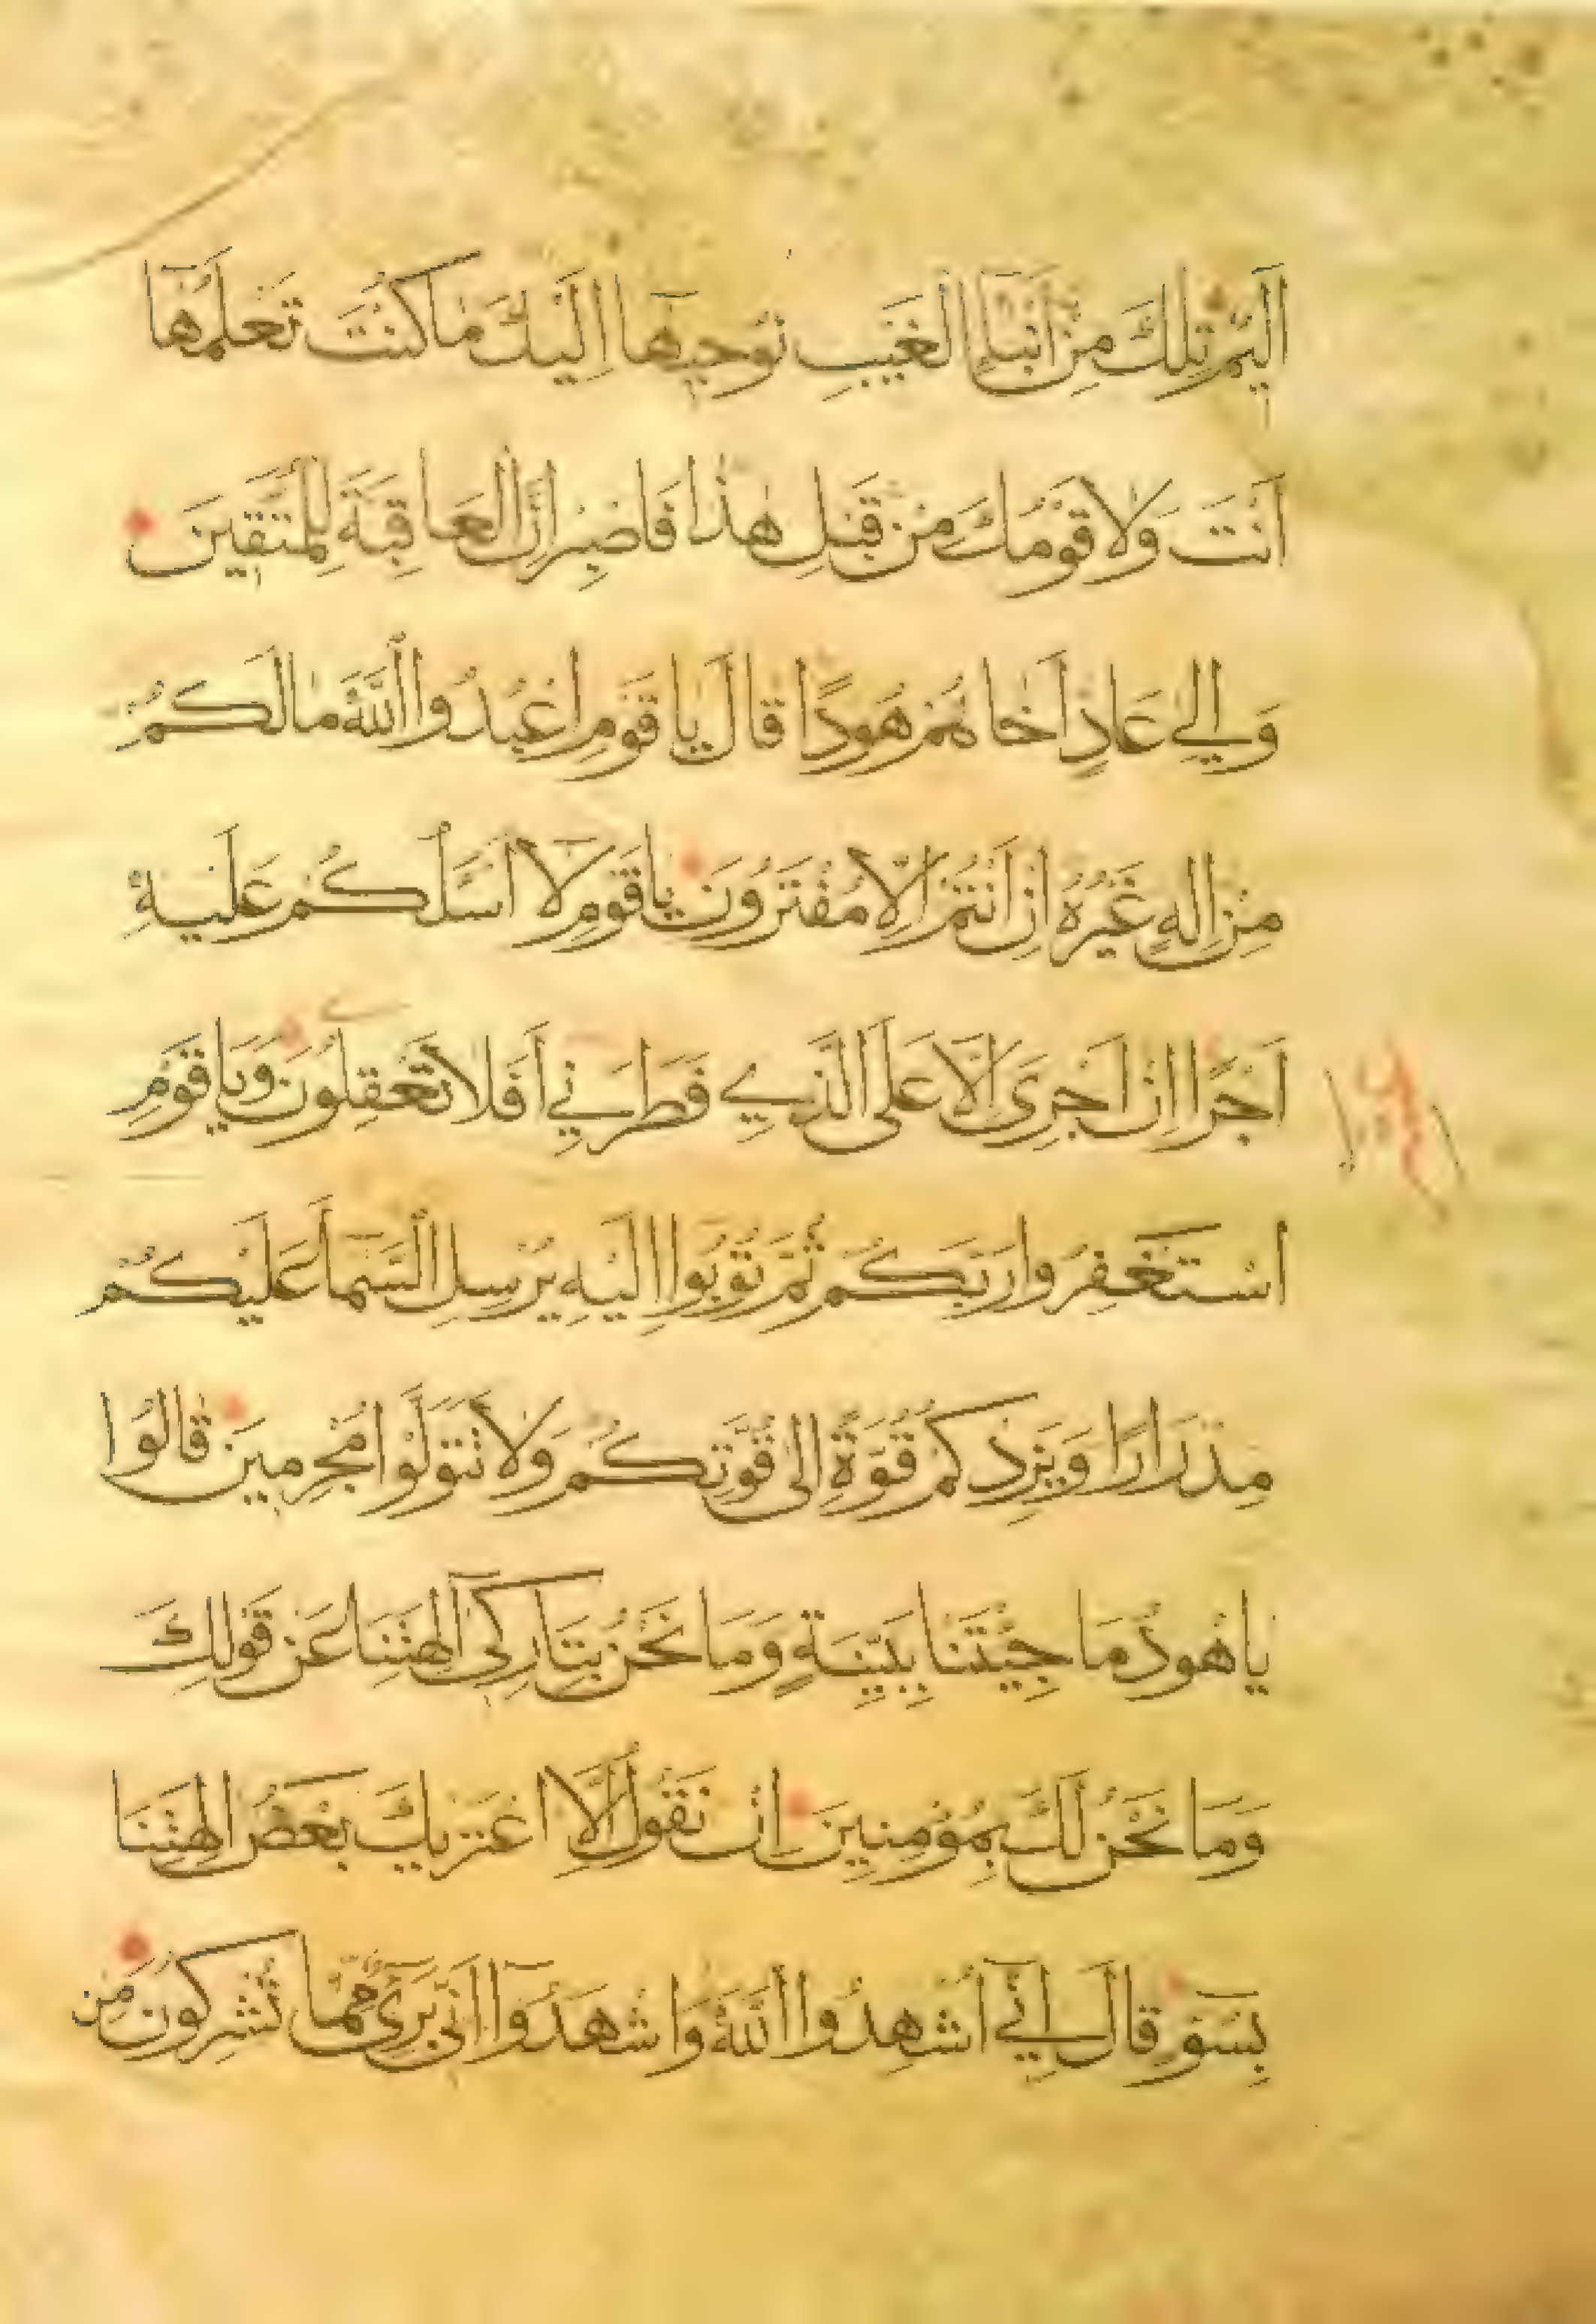 اَلِيمٌ تِلْكَ مِنْ اَنْبَآءِ الْغَيْبِ نُوحِيهَآ اِلَيْكَ مَا كُنْتَ تَعْلَمُهَآ
اَنْتَ وَلَا قَوْمُكَ مِنْ قَبْلِ هٰذَا فَاصْبِرْ اِنَّ الْعَاقِبَةَ لِلْمُتَّقِينَ
وَاِلٰى عَادٍ اَخَاهُمْ هُودًا قَالَ يَا قَوْمِ اعْبُدُوا اللّٰهَ مَا لَكُمْ
مِنْ اِلٰهٍ غَيْرُهُ اِنْ اَنْتُمْ اِلَّا مُفْتَرُونَ يَا قَوْمِ لَآ اَسْئَلُكُمْ عَلَيْهِ
اَجْرًا اِنْ اَجْرِىَ اِلَّا عَلَى الَّذِي فَطَرَنِي اَفَلَا تَعْقِلُونَ وَيَا قَوْمِ
اسْتَغْفِرُوا رَبَّكُمْ ثُمَّ تُوبُوا اِلَيْهِ يُرْسِلِ السَّمَآ عَلَيْكُمْ
مِدْرَارًا وَيَزِدْكُمْ قُوَّةً اِلٰى قُوَّتِكُمْ وَلَا تَتَوَلَّوْا مُجْرِمِينَ قَالُوا
يَا هُودُ مَا جِئْتَنَا بِبَيِّنَةٍ وَمَا نَحْنُ بِتَارِكِىٓ اٰلِهَتِنَا عَنْ قَوْلِكَ
وَمَا نَحْنُ لَكَ بِمُؤْمِنِينَ اِنْ نَقُولُ اِلَّا اعْتَرٰيكَ بَعْضُ اٰلِهَتِنَا
بِسُوٓءٍ قَالَ اِنِّيٓ اُشْهِدُ وا اللّٰهَ وَاشْهَدُوٓا اَنِّى بَرِىٓءٌ مِمَّا تُشْرِكُونَ مِنْ